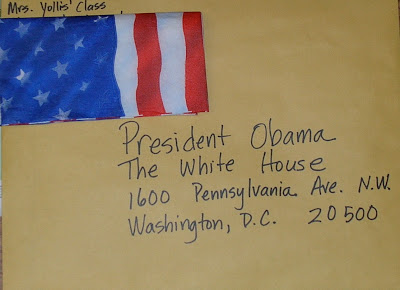 Mrs. Yollis' Class
President Obama
The White House
1600 Pennsylvania Ave. N.W.
Washington, D.C. 20500